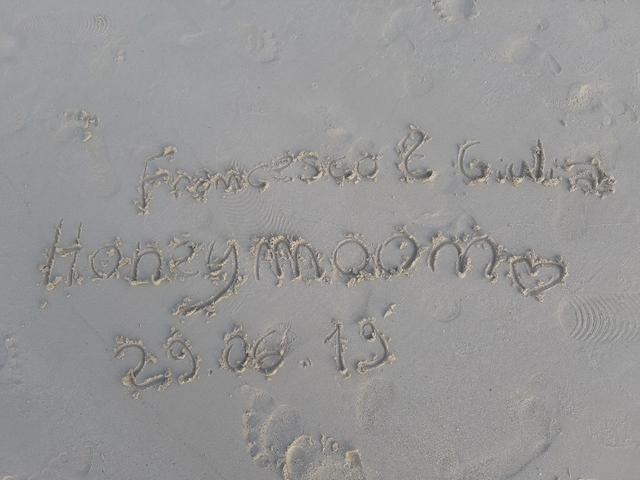 Francesco & Giulia
Honeymoom♡
29.06.19